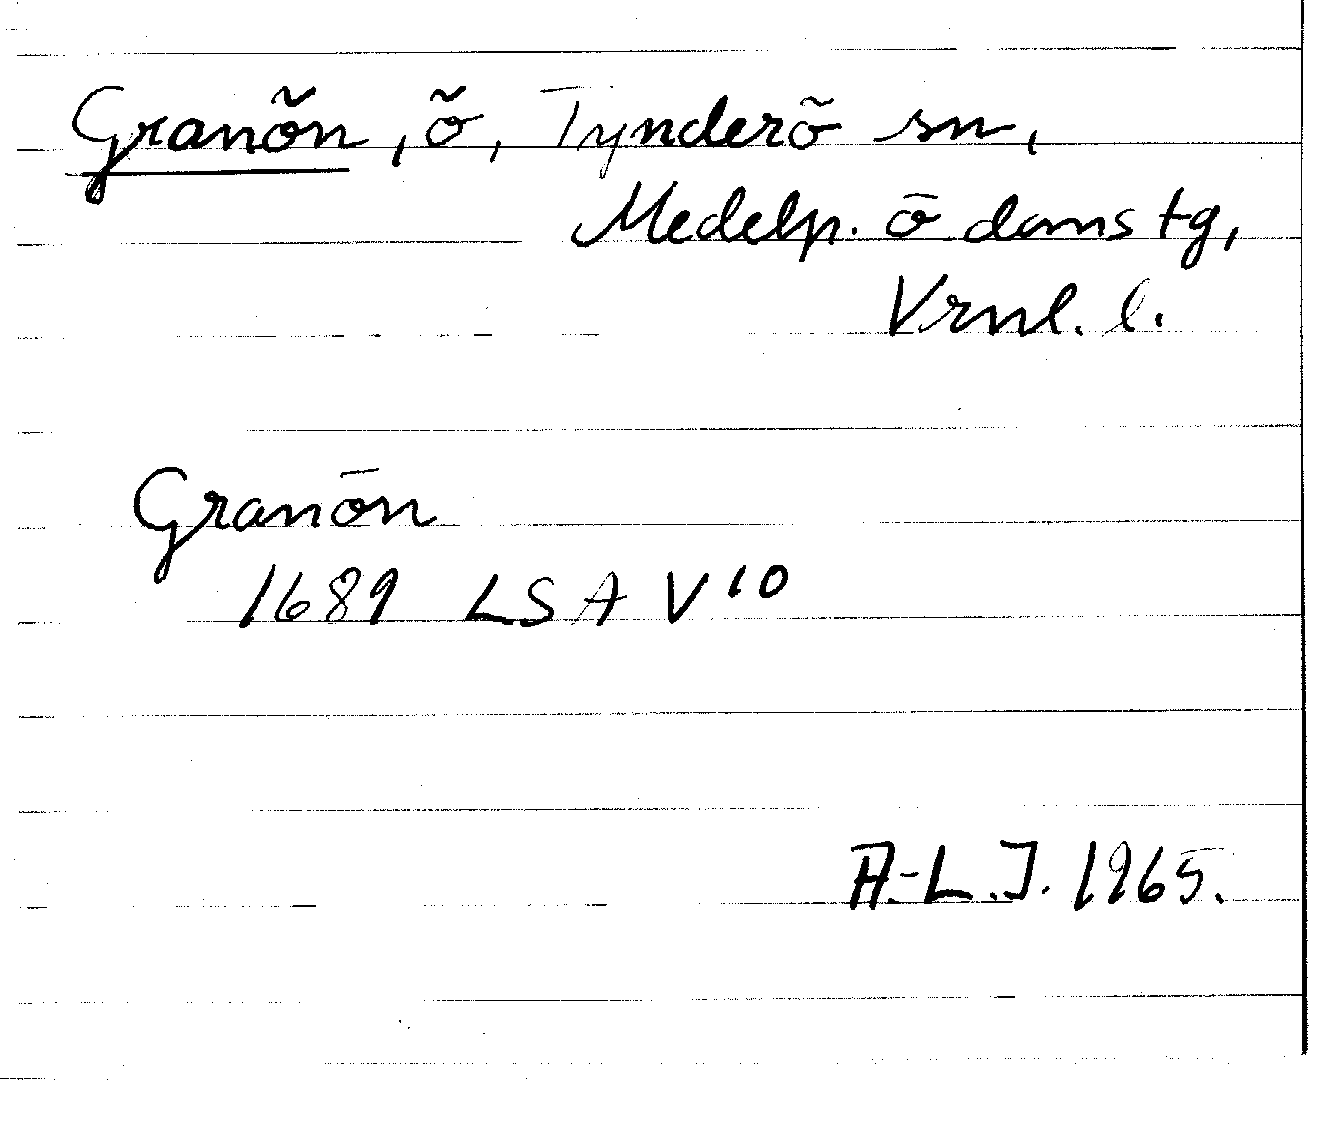 Granön, ö, Tynderö sn,
Medelp. ö doms tg,
Vrnl. l.
Granön
1689 LSA V 10
A.-L.J. 1965.